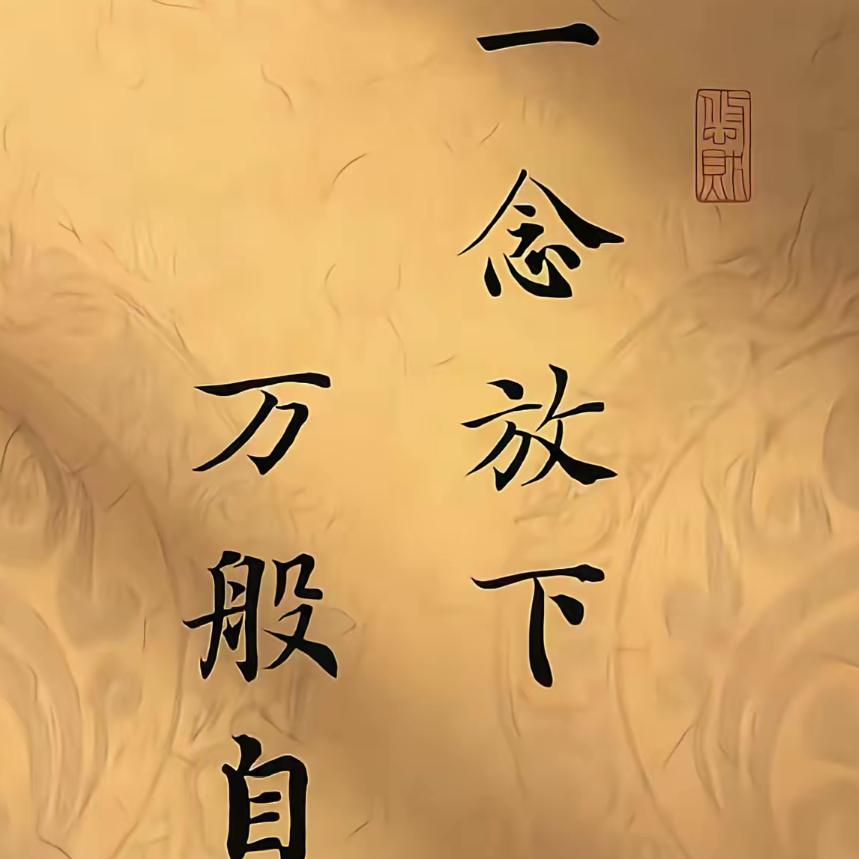 一念放下
万般自